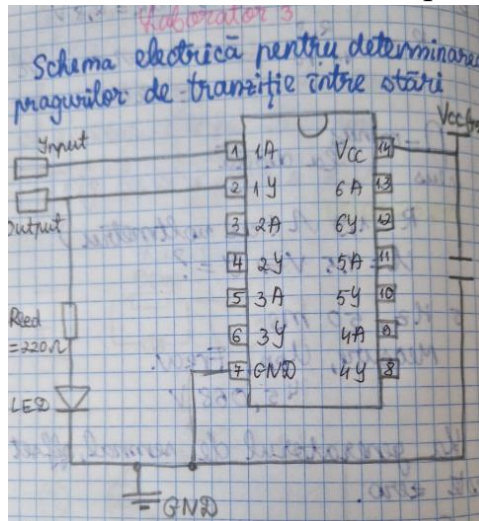 Laborator 3
Schema electrică pentru determinarea
pragurilor de tranziție între stări
Input
Output
Rled
=220Ω
LED
GND
1 1A
2 1Y
3 2A
4 2Y
5 3A
6 3Y
7 GND
Vcc 14
6A 13
6Y 12
5A 11
5Y 10
4A 9
4Y 8